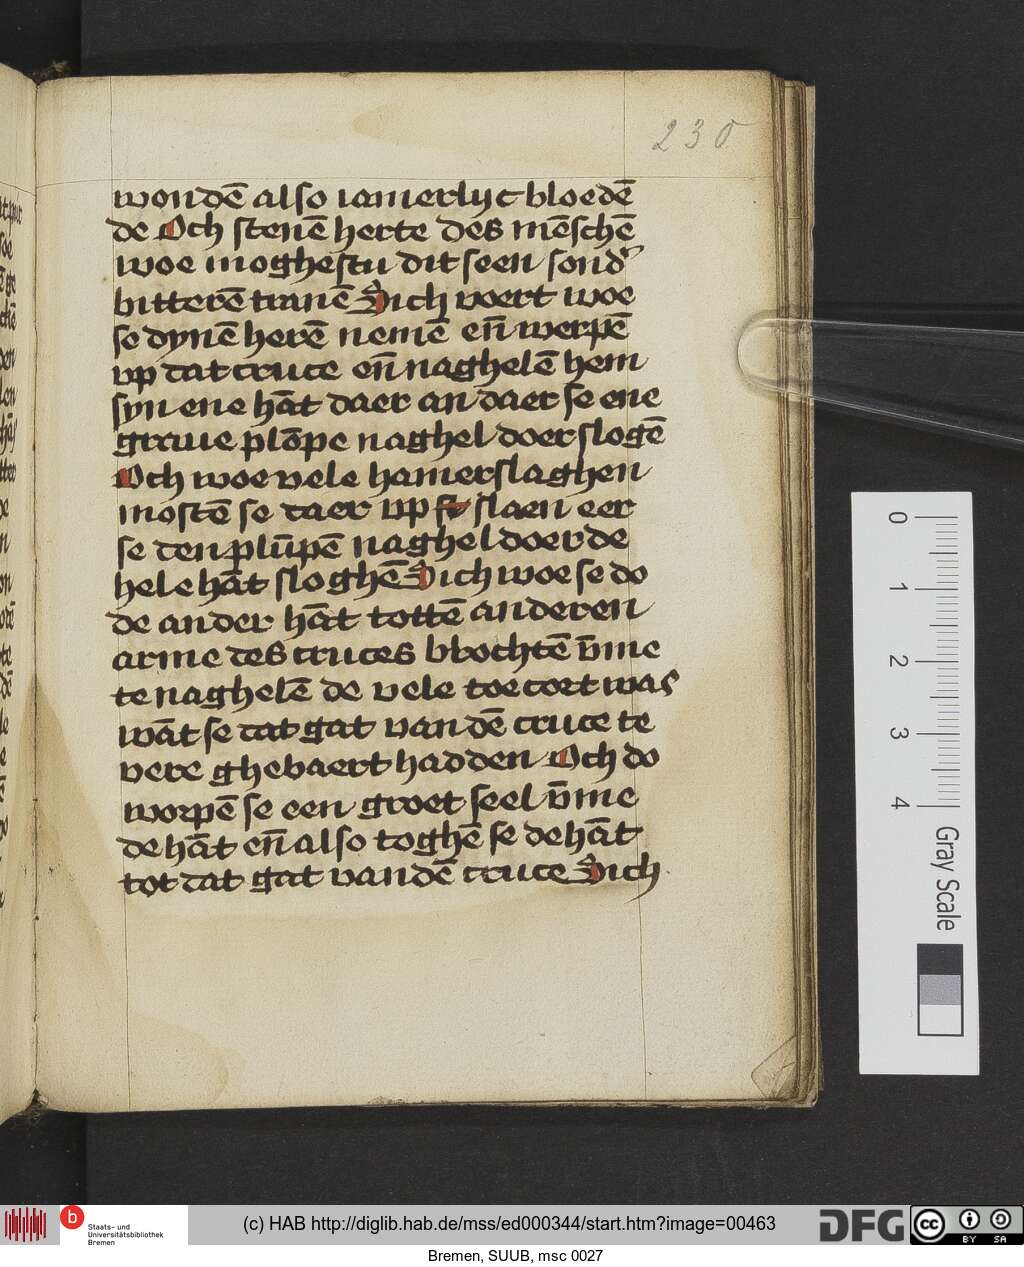 230
wondē also iamerlyc bloedē
de Och stenē herte des mēschē
woe moghestu dit seen sond᷒
bitterē tranē Sich voert woe
se dynē herē nemē en̄ werpē
vp dat cruce en̄ naghelē hem
syn ene hāt daer an daer se ene
graue plōpe naghel doer slogē
Och woe vele hamerslaghen
mostē se daer vp slaen eer
se den plūpē naghel doer de
hele hāt sloghē Sich woe se do
de ander hāt tottē anderen
arme des cruces brochtē v̄me
te naghelē de vele toe cort was
wāt se dat gat van dē cruce te
vere ghebaert hadden Och do
worpē se een groet seel v̄me
de hāt en̄ also toghē se de hāt
tot dat gat van dē cruce Sich
0
1
2
3
4
Gray Scale
b
Staats- und
Universitätsbibliothek
Bremen
(c) HAB http://diglib.hab.de/mss/ed000344/start.htm?image=00463
DFG
cc
BY SA
Bremen, SUUB, msc 0027